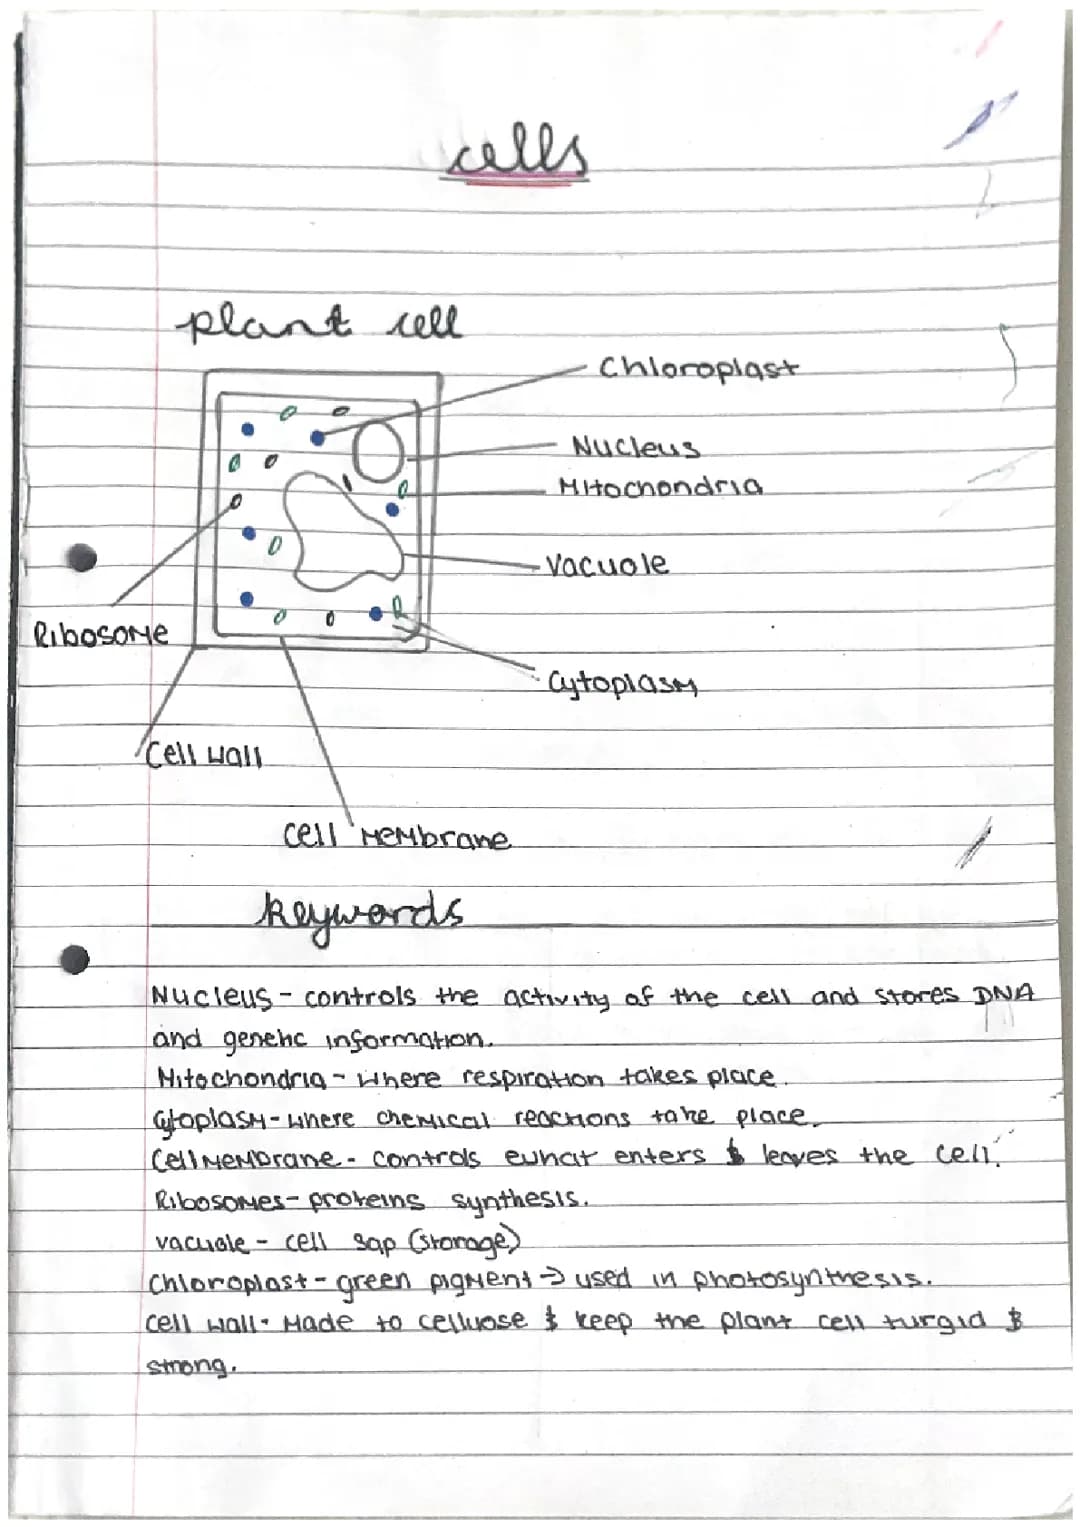 cells
plant cell
Chloroplast
Nucleus
Mitochondria
Vacuole
Ribosome
Cytoplasm
Cell wall
Cell membrane
keywords
Nucleus - controls the activity of the cell and stores DNA
and genetic information.
Mitochondria - where respiration takes place.
Cytoplasm - where chemical reactions take place.
Cell membrane - controls ewhat enters & leaves the cell.
Ribosomes - proteins synthesis.
vacuole - cell sap (storage)
Chloroplast - green pigment → used in photosynthesis.
Cell wall - Made to cellulose & keep the plant cell turgid &
strong.